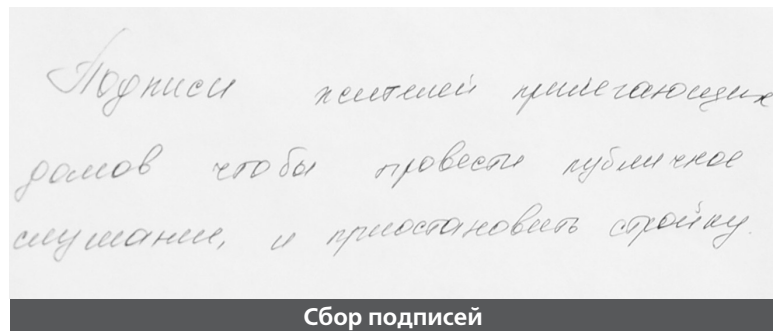 Подписи жителей прилегающих
домов чтобы провести публичное
слушание, и приостановить стройку.
Сбор подписей